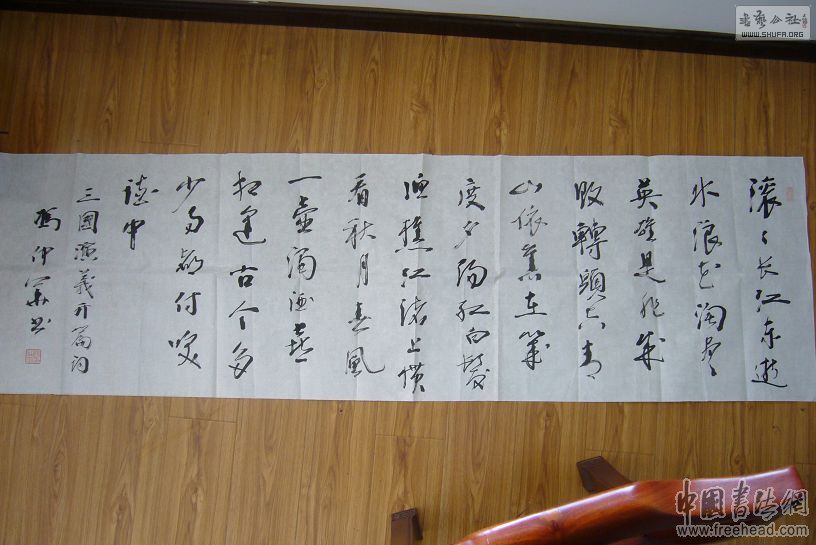 滚〻长江东逝
水浪花淘尽
英雄是非成
败轉頭空青
山依舊在几
度夕陽红白髮
渔樵江渚上惯
看秋月春風
一壶濁酒喜
相逢古今多
少事都付笑
谈中
三國演義开篇词
书
書藝公社
WWW.SHUFA.ORG
中國書法網
www.freehead.com